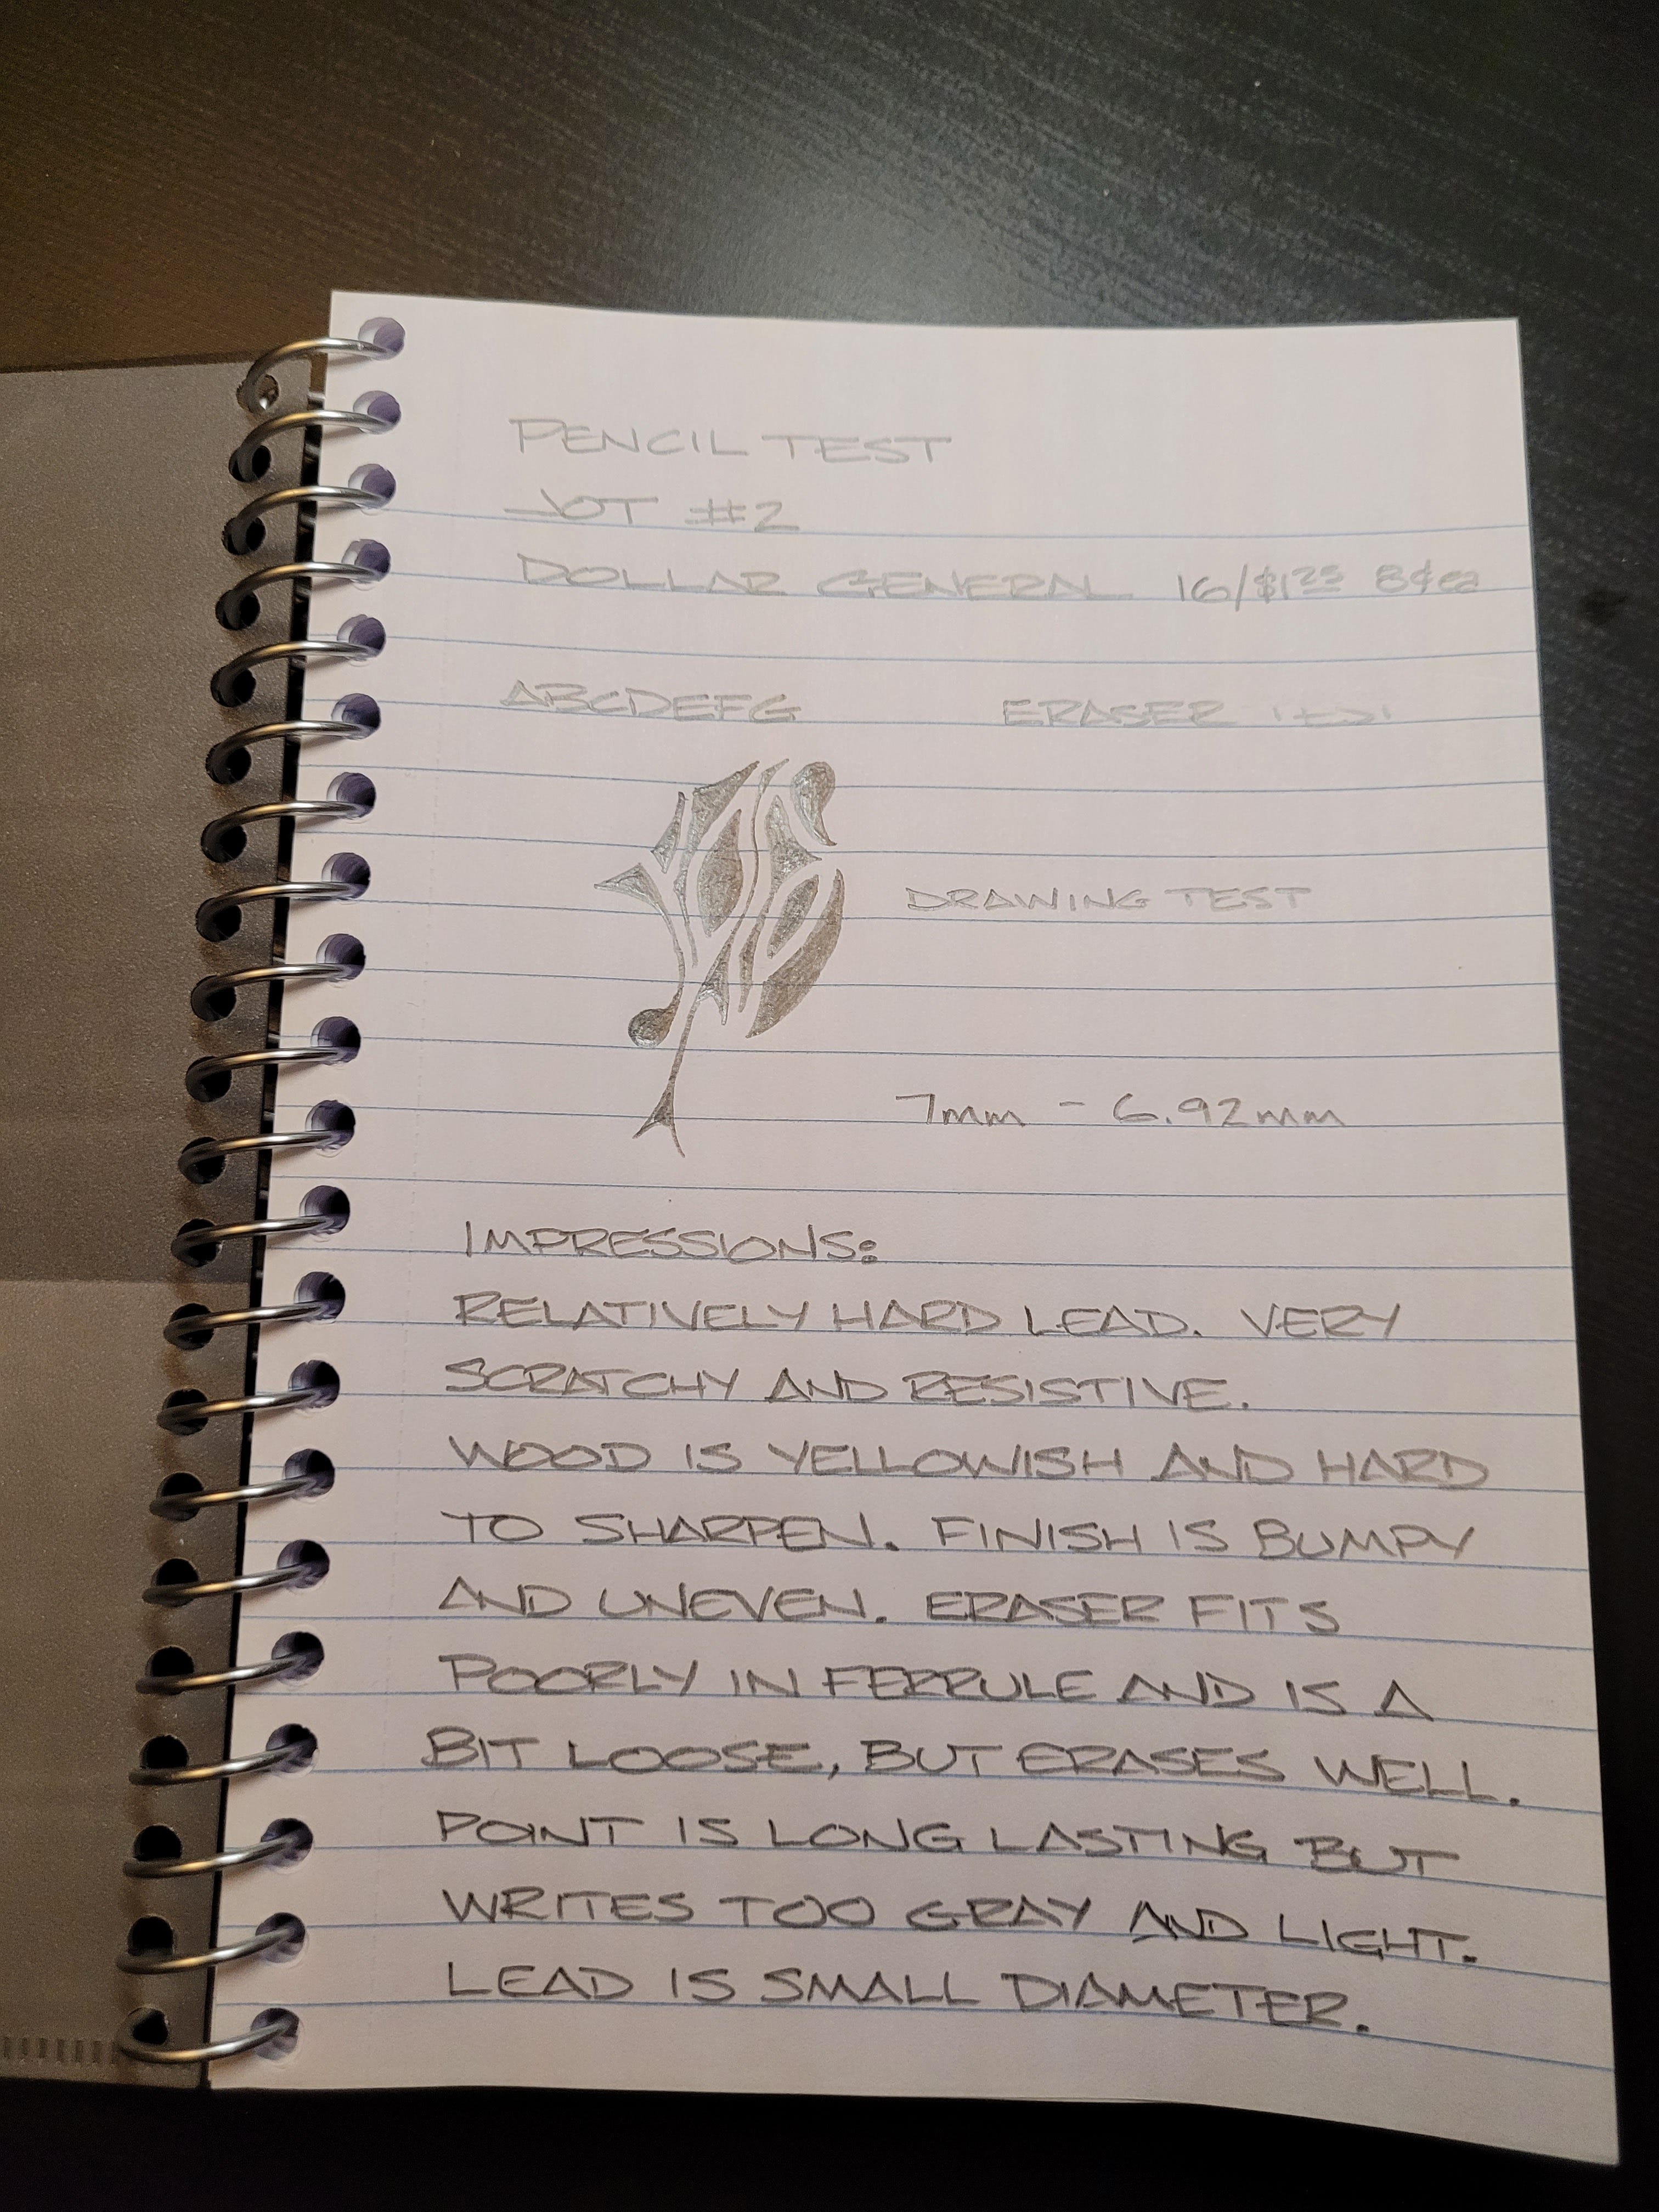 PENCIL TEST
JOT #2
DOLLAR GENERAL 16/$1.25 8¢ea
ABCDEFG ERASER TEST
DRAWING TEST
7mm - 6.92mm
IMPRESSIONS:
RELATIVELY HARD LEAD. VERY
SCRATCHY AND RESISTIVE.
WOOD IS YELLOWISH AND HARD
TO SHARPEN. FINISH IS BUMPY
AND UNEVEN. ERASER FITS
POORLY IN FERRULE AND IS A
BIT LOOSE, BUT ERASES WELL.
POINT IS LONG LASTING BUT
WRITES TOO GRAY AND LIGHT.
LEAD IS SMALL DIAMETER.